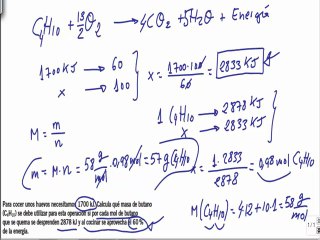 C4H10 + 13/2 O2 → 4CO2 + 5H2O + Energía
1700 KJ → 60
x → 100
x = 1700·100/60 = 2833 KJ
1 C4H10 → 2878 KJ
x → 2833 KJ
x = 1·2833/2878 = 0,98 mol C4H10
M = m/n
m = M·n = 58 g/mol · 0,98 mol = 57 g C4H10
M(C4H10) = 4·12 + 10·1 = 58 g/mol
Para cocer unos huevos necesitamos 1700 kJ. Calcula qué masa de butano
(C4H10) se debe utilizar para esta operación si por cada mol de butano
que se quema se desprenden 2878 kJ y al cocinar se aprovecha el 60 %
de la energía.